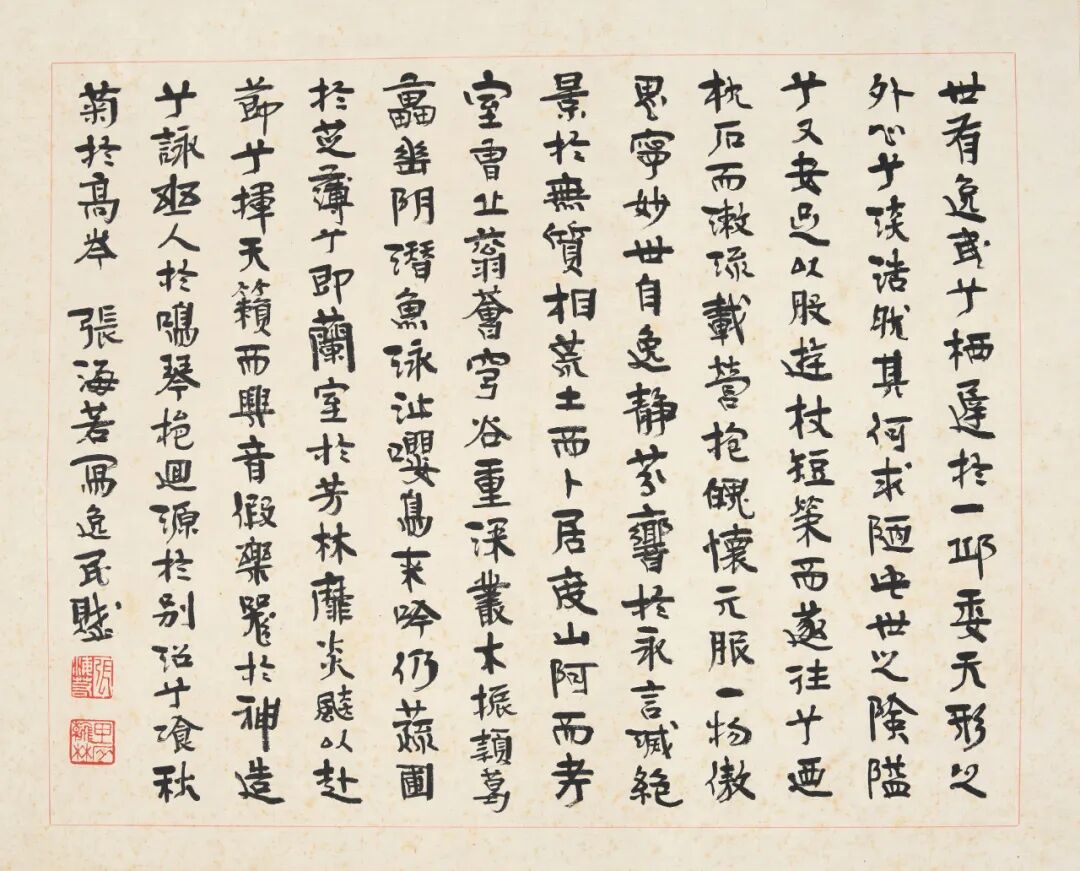 世有逸民兮栖遲於一邱委天形以
外心兮淡浩然其何求陋此世之險隘
兮又安足以般遊杖短策而遂往兮迺
枕石而漱流載營抱魄懷元服一物傲
思寧妙世自逸静芬響於永言滅絕
景於無質相荒土而卜居度山阿而考
室曾丘翳薈穹谷重深叢木振穎葛
藟垂阴潛魚泳沚嚶鳥来吟仍蔬圃
於芝薄兮即蘭室於芳林靡炎飈以赴
節兮揮天籟而興音假樂器於神造
兮詠幽人於鳴琴挹迴源於别沼兮飡秋
菊於高岑 張海若寫逸民賦
甲辰翰林